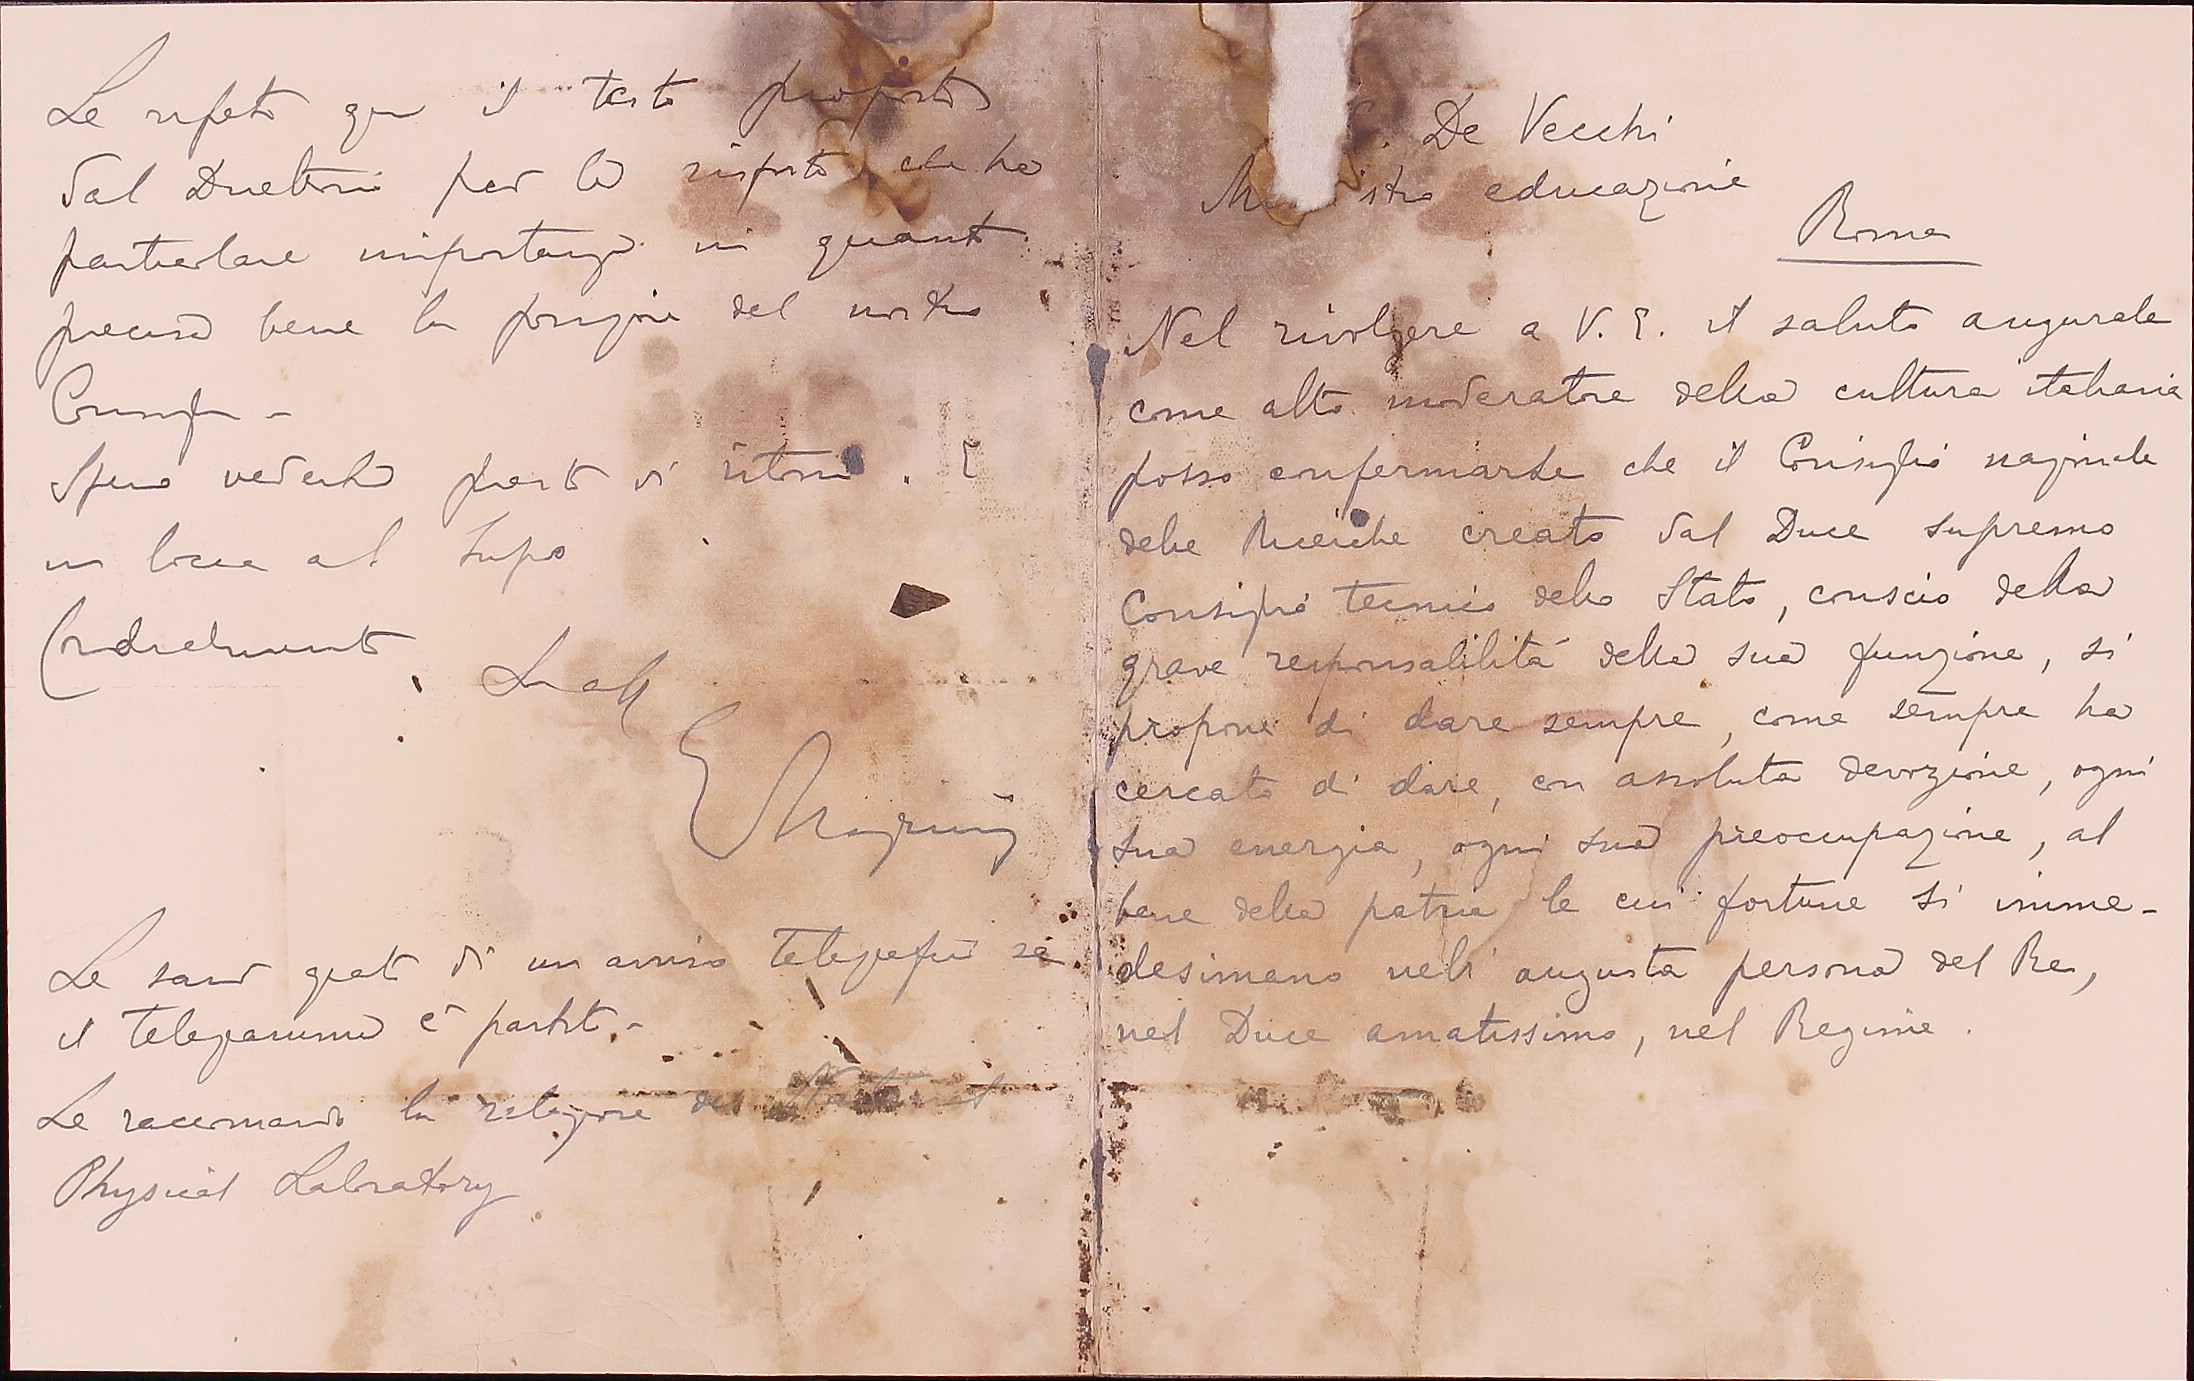 Le ripeto qui il testo proposto
dal Direttorio per la risposta che ha
particolare importanza in quanto
precisa bene la posizione del nostro
Consiglio -
Spero vederla presto di ritorno. E
in bocca al lupo
Cordialmente
EMagrini
Le sarò grato di un avviso telegrafico se
il telegramma è partito.-
Le raccomando la relazione del National
Physical Laboratory
. De Vecchi
Ministro educazione
Roma
Nel rivolgere a V. E. il saluto augurale
come alto moderatore della cultura italiana
posso confermarLe che il Consiglio nazionale
delle Ricerche creato dal Duce supremo
Consiglio tecnico dello Stato, conscio della
grave responsabilità della sua funzione, si
propone di dare sempre, come sempre ha
cercato di dare, con assoluta devozione, ogni
sua energia, ogni sua preoccupazione, al
bene della patria le cui fortune si imme-
desimano nell'augusta persona del Re,
nel Duce amatissimo, nel Regime.